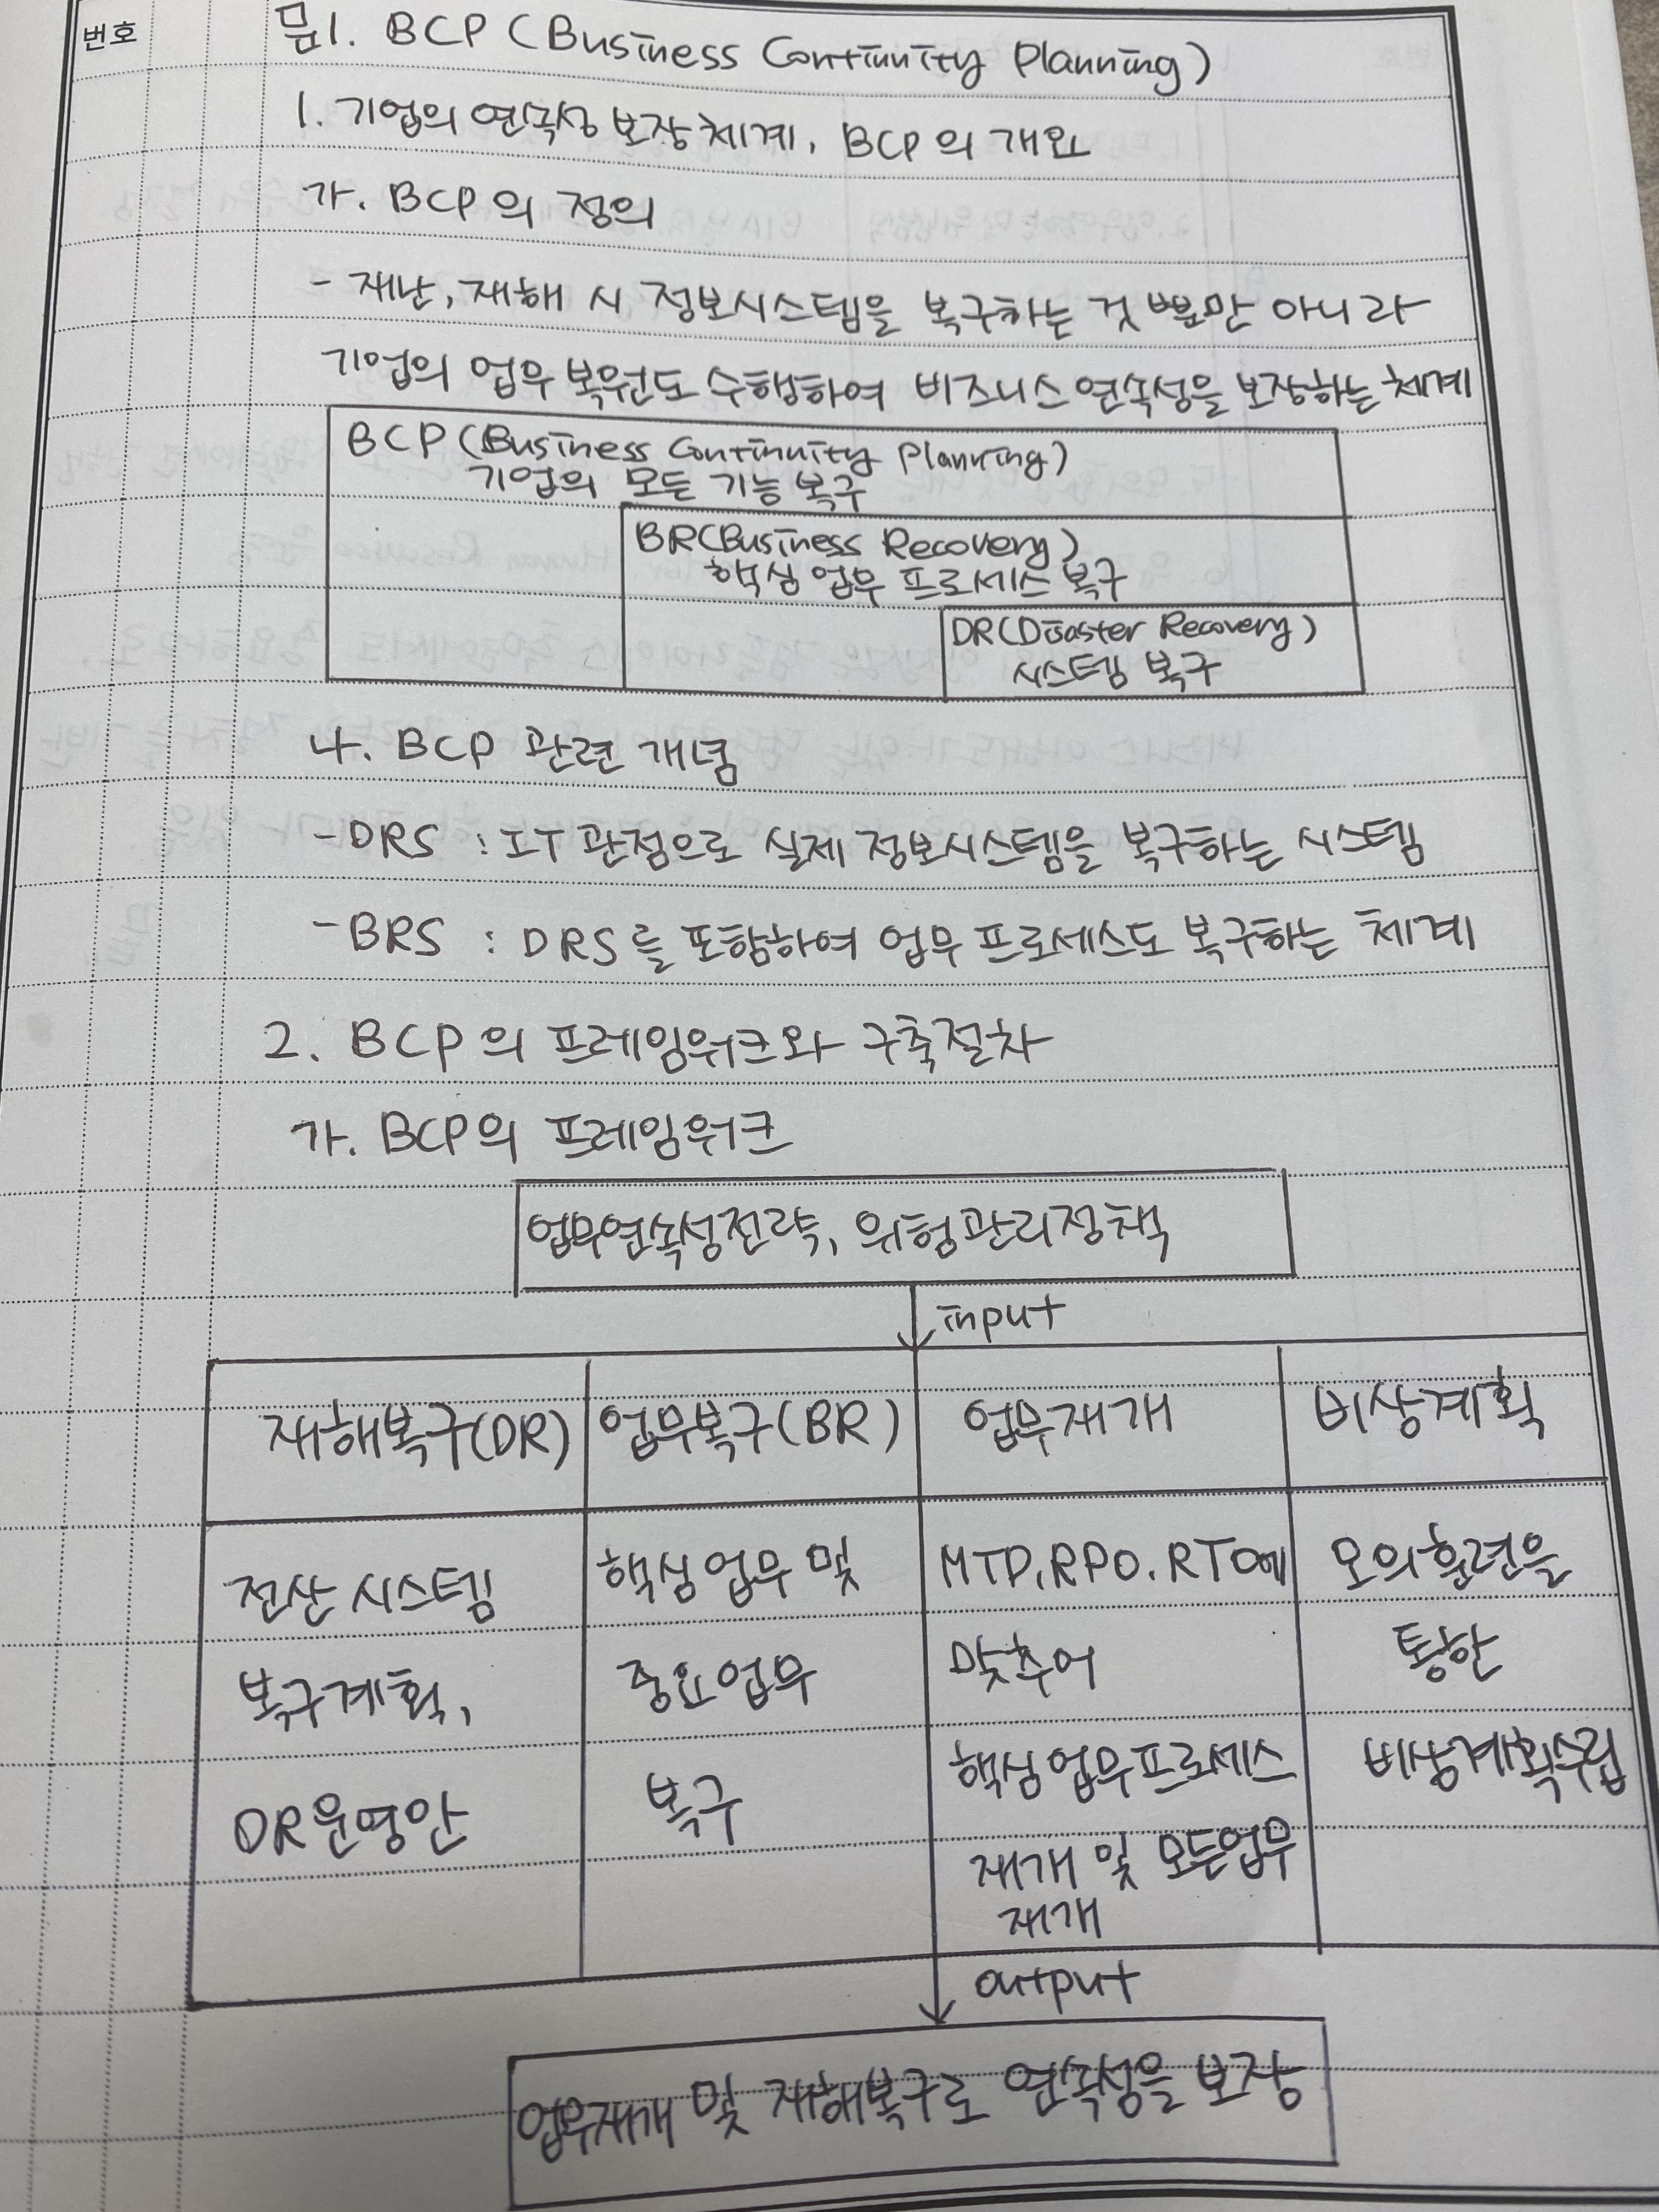 번호
문1. BCP (Business Continuity Planning)
1. 기업의 연속성 보장 체계, BCP의 개요
가. BCP의 정의
- 재난, 재해 시 정보시스템을 복구하는 것 뿐만 아니라
기업의 업무 복원도 수행하여 비즈니스 연속성을 보장하는 체계
BCP (Business Continuity Planning)
기업의 모든 기능 복구
BR(Business Recovery)
핵심 업무 프로세스 복구
DR(Disaster Recovery)
시스템 복구
나. BCP 관련 개념
- DRS : IT 관점으로 실제 정보시스템을 복구하는 시스템
- BRS : DRS를 포함하여 업무 프로세스도 복구하는 체계
2. BCP의 프레임워크와 구축절차
가. BCP의 프레임워크
업무연속성전략, 위험관리정책
input
재해복구(DR) 업무복구(BR) 업무재개 비상계획
전산 시스템 핵심 업무 및 MTD, RPO, RTO에 모의훈련을
복구계획, 중요업무 맞추어 통한
DR운영안 복구 핵심업무프로세스 비상계획수립
재개 및 모든업무
재개
output
업무재개 및 재해복구로 연속성을 보장